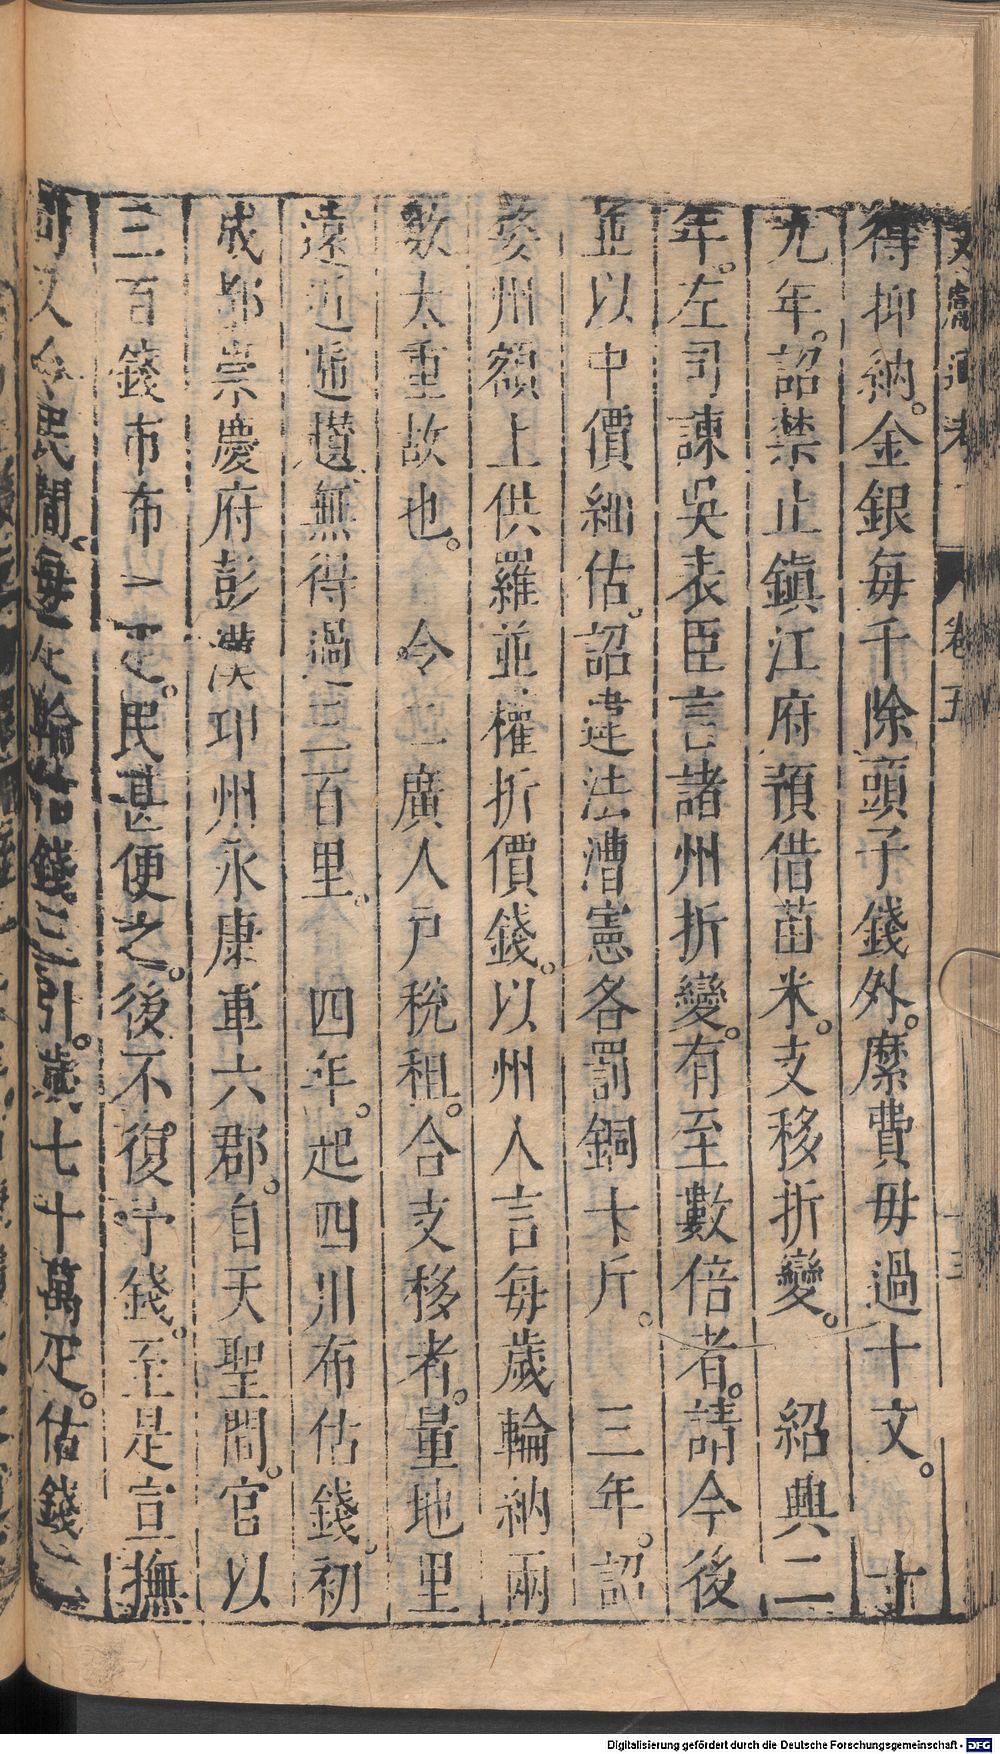 文獻通考 卷五 十三
得抑納。金銀每千除頭子錢外。縻費毋過十文。 十
九年。詔禁止鎮江府預借苗米。支移折變。 紹興二
年。左司諫吳表臣言諸州折變。有至數倍者。請今後
並以中價紐估。詔違法漕憲各罰銅十斤。 三年。詔
婺州額上供羅並權折價錢。以州人言每歲輪納兩
數太重故也。 令二廣人戶稅租。合支移者。量地里
遠近遞趲、無得過三百里。 四年。起四川布估錢。初
成都崇慶府彭漢邛州永康軍六郡。自天聖間。官以
三百錢市布一疋。民甚便之。後不復予錢。至是宣撫
司又令民間、每疋輸估錢三引。歲七十萬疋。估錢二
Digitalisierung gefördert durch die Deutsche Forschungsgemeinschaft - DFG